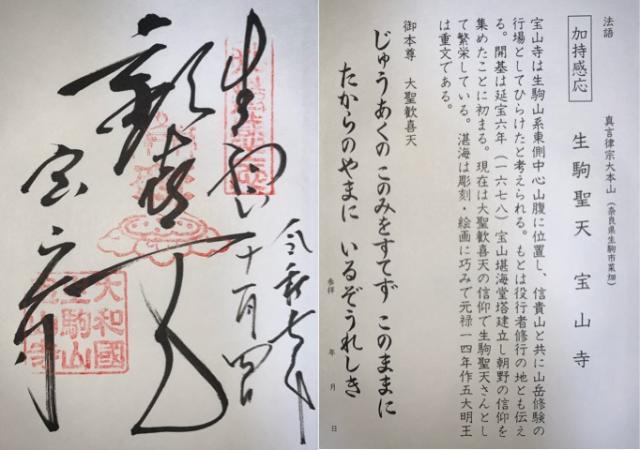 法語
加持感応
真言律宗大本山（奈良県生駒市菜畑）
生駒聖天　宝山寺
宝山寺は生駒山系東側中心山腹に位置し、信貴山と共に山岳修験の
行場としてひらけたと考えられる。もとは役行者修行の地とも伝え
る。開基は延宝六年（一六七八）宝山湛海堂塔建立し朝野の信仰を
集めたことに初まる。現在は大聖歓喜天の信仰で生駒聖天さんとし
て繁栄している。湛海は彫刻・絵画に巧みで元禄一四年作五大明王
は重文である。
御本尊　大聖歓喜天
じゅうあくの このみをすてず このままに
たからのやまに いるぞうれしき
参拝　年　月　日
令和七年
生駒山
歓喜天
宝山寺
大和國
生駒山